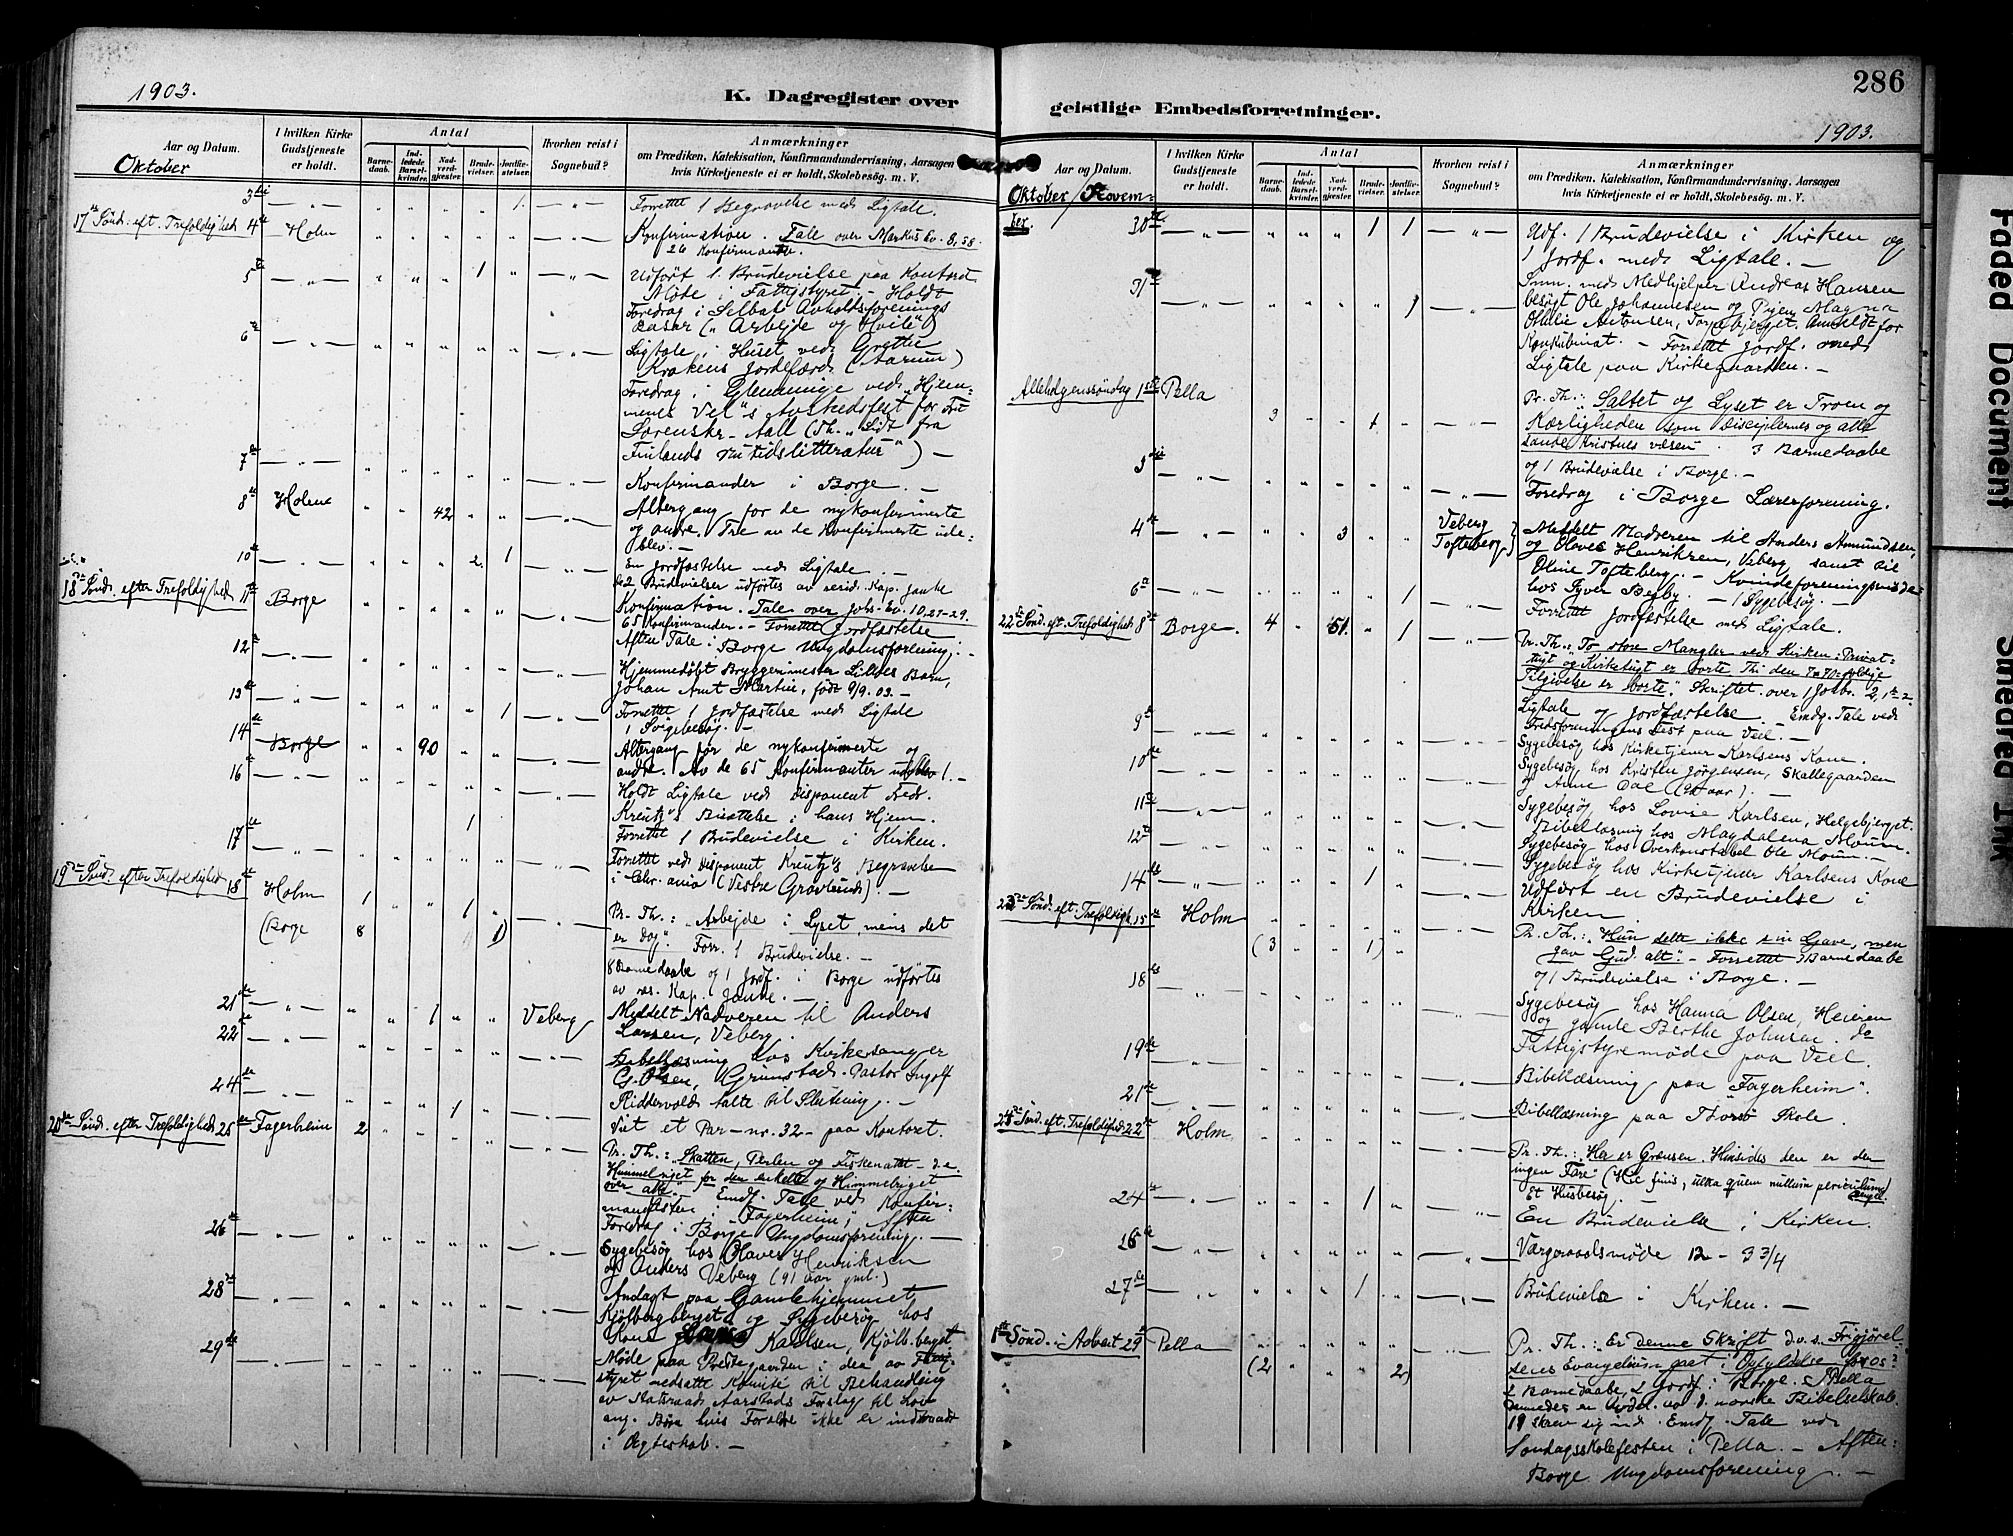 1903.
K. Dagregister over
Aar og Datum.
I hvilken Kirke Gudstjeneste er holdt.
Antal
Barne-daab.
Ind-ledede Barsel-kvinder.
Nad-verd-gjester.
Brude-vielser.
Jordfæ-stelser.
Hvorhen reist i Sognebud?
Anmærkninger
om Prædiken, Katekisation, Konfirmandundervisning, Aarsagen
hvis Kirketjeneste ei er holdt, Skolebesøg. m. V.
Oktober
3die — " — " " " " 1. — " — Forrettet 1 Begravelse med Ligtale.
17de Sönd. eft. Trefoldighed 4de Holm " " " " " — " — Konfirmation. Tale over Markus Ev. 8, 38.
26 Konfirmander.
5te — " — " " " 1 " — " — Udført 1 Brudevielse paa Kontoret
Møde i Fattigstyret. – Holdt
Foredrag i Selbak Avholdsforenings
Basar („Arbejde og Hvile")
6te — " — " " " " " — " — Ligtale i Huset ved Grethe
Krokens Jordefærd (Aarum)
Foredrag i Glemminge ved „Hjem-
menes Vel"s Avskedsfest for Frk
Sørenskr. Aall (Th. „Lidt fra
Finlands nutidslitteratur") —
7de — " — " " " " " — " — Konfirmander i Borge. —
8de Holm " " 42 " " — " — Altergang for de nykonfirmerte
og andre. Tre av de Konfirmerte ude-
blev. —
10de — " — " " " 2. 1 — " — En Jordfæstelse med Ligtale. —
2 Brudevielser udførtes av resid. Kap. Janke
18de Sönd. efter Trefoldighed 11te Borge " " " " " — " — Konfirmation. Tale over Joh. Ev. 10, 27-29.
65 Konfirmander. – Forrettet 1 Jordfæstelse
Aften Tale i Borge Ungdomsforening. –
12te — " — " " " " " — " — Hjemmedøbt Bryggerimester Lilles Barn,
Johan Arnt Martin, født 9/9. 03. –
13de — " — " " " " 1 — " — Forrettet 1 Jordfæstelse med Ligtale
1 Sygebesøg. –
14de Borge " " 90 " " — " — Altergang for de nykonfirmerte og
andre. Av de 65 Konfirmanter udeblev 1. –
16de — " — " " " " " — " — Holdt Ligtale ved Disponent Fredr.
Kreutz's Bisættelse i hans Hjem.
17de — " — " " " 1 " — " — Forrettet 1 Brudevielse i Kirken.
Forrettet ved Disponent Kreutz's Begravelse
i Chr.ania (Vestre Gravlund). –
19de Sönd. efter Trefoldighed 18de Holm 1 " " 1 " — " — Pr. Th.: „Arbejde i Lyset, mens det
(Borge 8 1) er Dag". Forr. 1 Brudevielse. –
8 Barnedaabe og 1 Jordf. i Borge udførtes
av res. Kap. Janke. –
21de — " — " " 1 " " Veberg Meddelt Nadveren til Anders
Larsen, Veberg.
22de — " — " " " " " — " — Bibellæsning hos Kirkesanger
G. Olsen, Grimstad. Pastor Ingolf
Ridderwold talte til Slutning. –
24de — " — " " " 1 " — " — Viet et Par – nr. 32 – paa Kontoret.
20de Sönd. efter Trefoldighed 25de Fagerheim 2 " " " " — " — Pr. Th.: „Skatten, Perlen og Fiskenættet –
Himmelriget for den enkelte og Himmelriget
over alle". Emdg. Tale ved Konfir-
mandfesten i „Fagerheim". Aften
Foredrag i Borge Ungdomsforening. –
26de — " — " " " " " — " — Sygebesøg hos Olaves Henriksen
og Anders Veberg (91 aar gml.)
28de — " — " " " " " — " — Andagt paa Gamlehjemmet
Kjølbergberget og Sygebesøg hos
Kone Karlsen, Kjølb.berget
29de — " — " " " " " — " — Møde paa Prestegaarden i den av Fattig-
styret nedsatte Komité til Behandling
av Statsraad Aarstads Forslag til Lov
ang. Børn hvis Foraldre ikke er indtraadt
i Ægteskab. —
286
geistlige Embedsforretninger.
1903.
Aar og Datum.
I hvilken Kirke Gudstjeneste er holdt.
Antal
Barne-daab.
Ind-ledede Barsel-kvinder.
Nad-verd-gjester.
Brude-vielser.
Jordfæ-stelser.
Hvorhen reist i Sognebud?
Anmærkninger
om Prædiken, Katekisation, Konfirmandundervisning, Aarsagen
hvis Kirketjeneste ei er holdt, Skolebesøg. m. V.
Oktober / Novem-
ber. 30te — " — " " " 1 1 — " — Udf. 1 Brudevielse i Kirken og
1 Jordf. med Ligtale. –
31te — " — " " " " 1 — " — Smm. med Medhjelper Andreas Hansen
besøgt Ole Johannesen og Pigen Magna
Othilie Antonsen, Torpebjerget. Anmeldt for
Konkubinat. – Forrettet Jordf. med
Ligtale paa Kirkegaarden. –
Allehelgenssøndag 1ste Pella 3 " " 1 " — " — Pr. Th.: Saltet og Lyset er Troen og
Kærligheden som Disciplernes og alle
sande Kristnes væsen. 3 Barnedaabe
og 1 Brudevielse i Borge. –
3die — " — " " " " " — " — Foredrag i Borge Lærerforening.
4de — " — " " 3 " " Veberg Tofteberg } Meddelt Nadveren til Anders Amundsen,
og Olaves Henriksen, Veberg samt til
Oline Tofteberg. – Kvindeforeningsmøde
hos Syver Begby. – 1 Sygebesøg. –
6te — " — " " " " 1 — " — Forrettet Jordfæstelse med Ligtale.
22de Sönd. eft. Trefoldighed 8de Borge. 4 " 51. " 1 — " — Pr. Th.: „To store Mangler ved Kirken: Privat-
tugt og Kirketugt er borte Thi den 7x70-foldige
Tilgivelse er borte." Skriftet. over 1 Joh.br. 2, 1-2
Ligtale og Jordfæstelse. Emdg. Tale ved
Fredsforeningens Fest paa Veel. –
9de — " — " " " " " — " — Sygebesøg hos Kirketjener Karlsens Kone.
10de — " — " " " " " — " — Sygebesøg hos Kristen Jørgensen, Skallegaarden
og Anne Dal (92 aar). –
11te — " — " " " " " — " — Sygebesøg hos Lovise Karlsen, Helgebjerget.
Bibellæsning hos Magdalena Moum.
12te — " — " " " " " — " — Sygebesøg hos Overkonstabel Ole Moum. –
Sygebesøg hos Kirketjener Karlsens Kone
14de — " — " " " 1 " — " — Udført en Brudevielse i
Kirken
23de Sönd. eft. Trefoldigh. 15de Holm " " " " " — " — Pr. Th.: „Hun delte ikke sin Gave, men
(3 " " 1) " gav Gud alt". – Forrettet 3 Barnedaabe
og 1 Brudevielse i Borge. –
18de — " — " " " " " — " — Sygebesøg hos Hanna Olsen, Heieren
og gamle Berthe Johnsen. do
Fattigstyremøde paa Veel.
19de — " — " " " " " — " — Bibellæsning paa „Fagerheim".
21de — " — " " " " " — " — Bibellæsning paa Thorsö Skole.
24de Sönd. eft. Trefoldighed 22de Holm " " " " " — " — Pr. Th.: „Her er Grænsen. Hinsides den er der
ingen Fare" (Hic finis, ultra quem nullum periculum)
Et Husbesøg. –
24de — " — " " " 1 " — " — En Brudevielse i Kirken.
26te — " — " " " " " — " — Værgeraadsmøde 12 – 3 3/4
27de — " — " " " 1 " — " — Brudevielse i Kirken. –
1ste Sönd. i Advent 29de Pella " " " " " — " — Pr. Th.: „Er denne Skrift d.v.s. Frigjørel-
(2 " " " 2) sens Evangelium gaat i Opfyldelse for os?
2 Barnedaabe, 2 Jordf. i Borge. I Pella
dannedes en Avdel. av d. norske Bibelselskab.
19 skrev sig ind. Emdg. Tale ved
Søndagsskolefesten i Pella. – Aften:
Borge Ungdomsforening. –
Faded Document
Smeared Ink